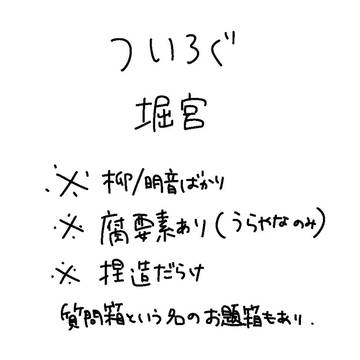 ついろぐ
堀宮
※ 柳/明音ばかり
※ 腐要素あり(うらやなのみ)
※ 捏造だらけ
質問箱という名のお題箱もあり.